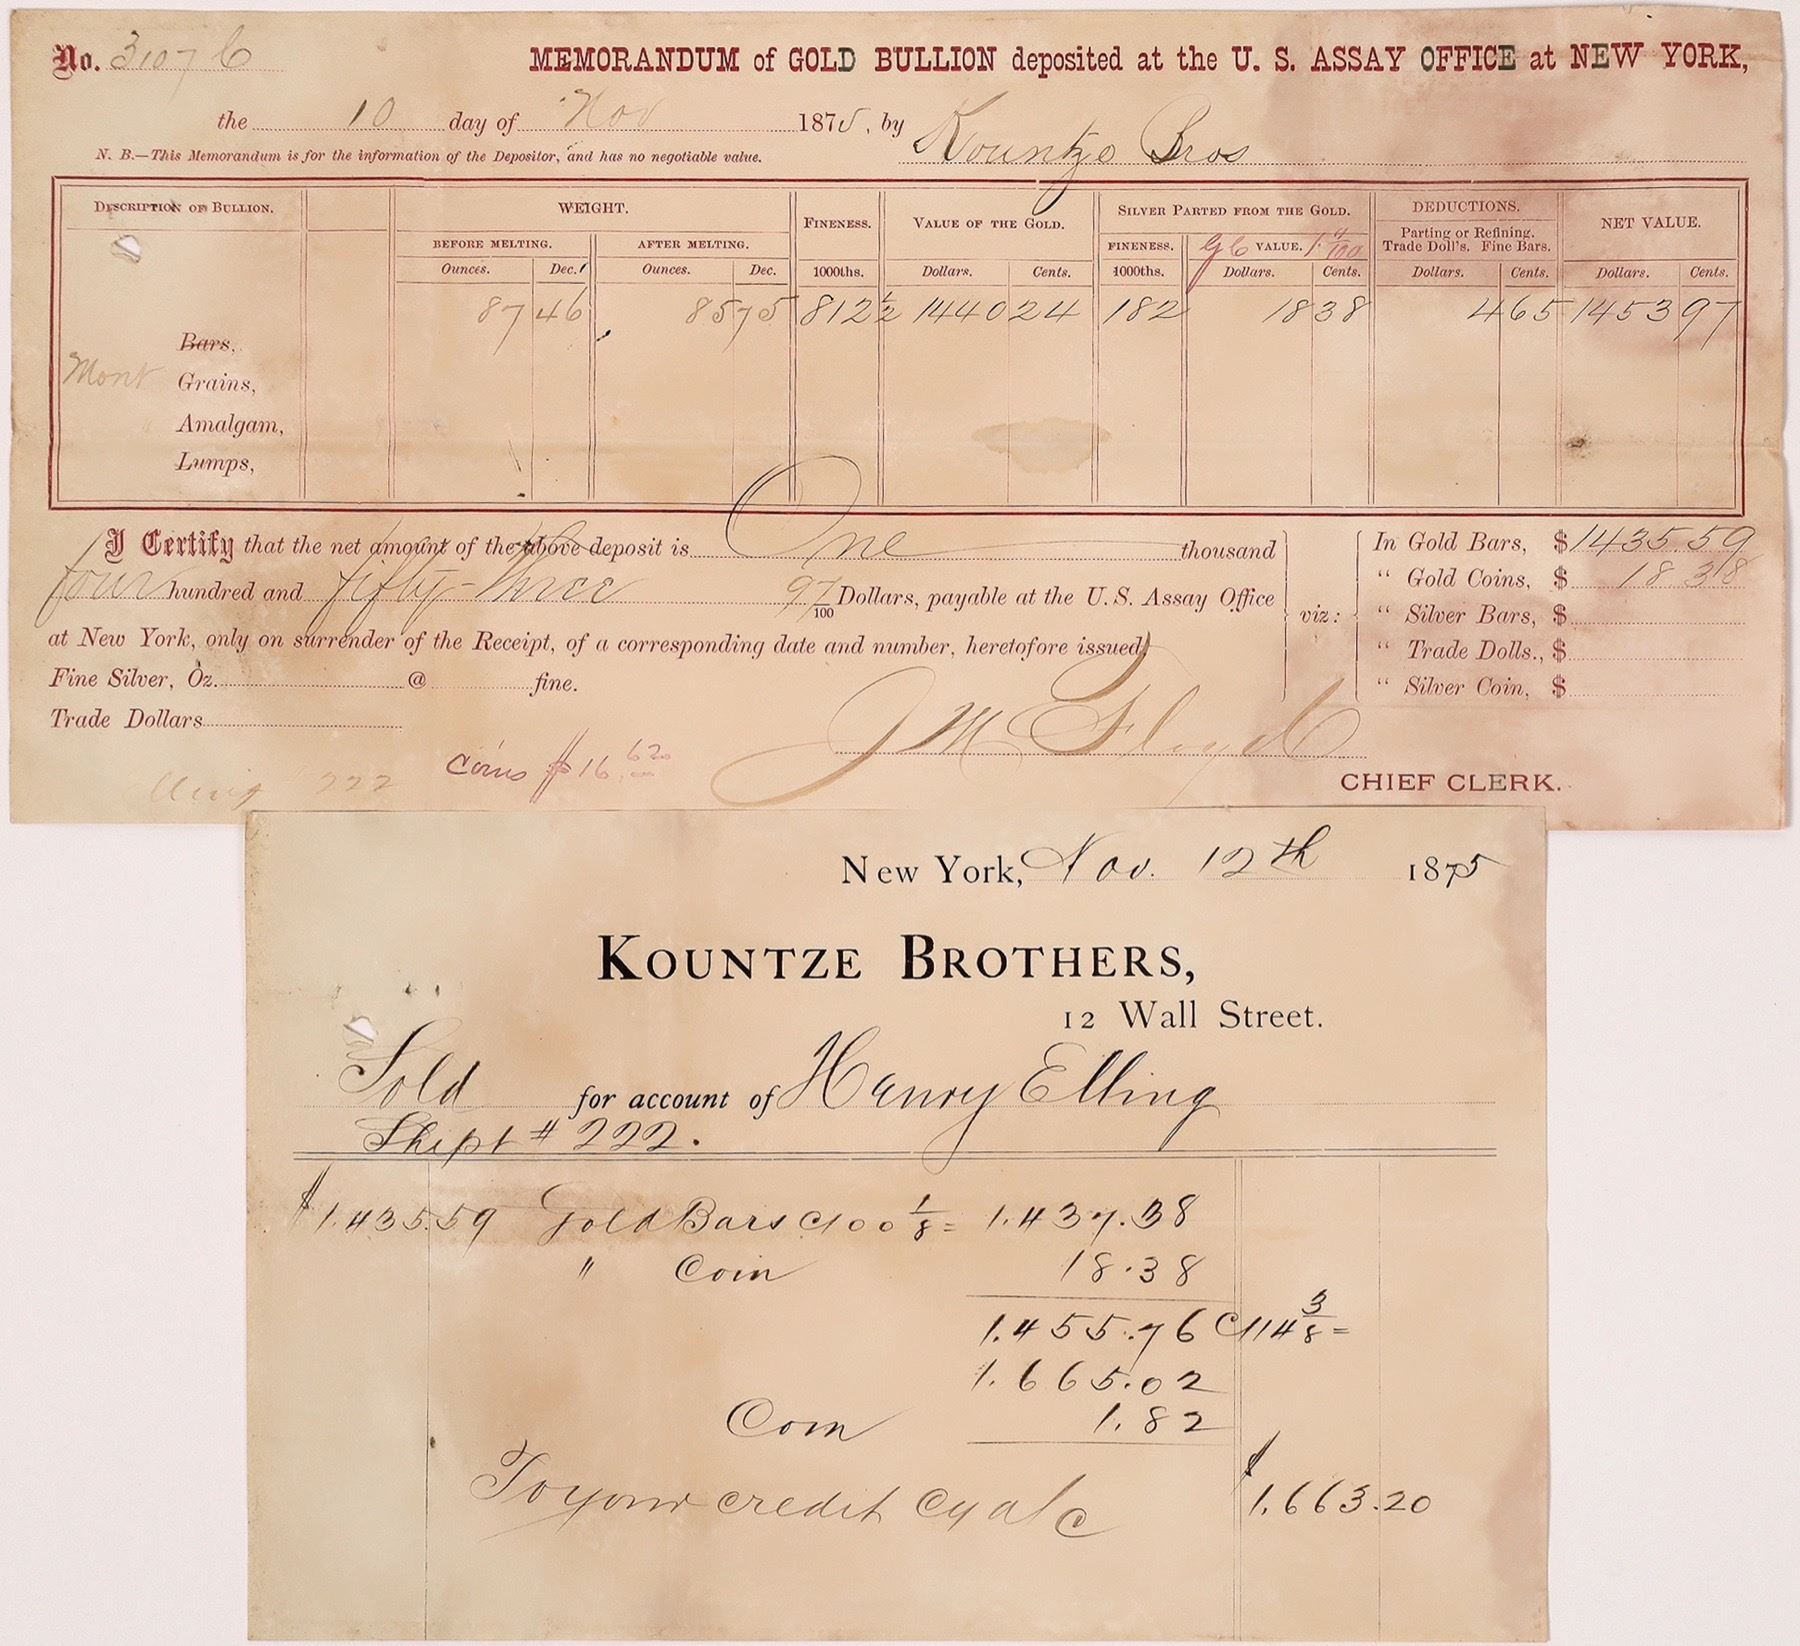 No. 31076 MEMORANDUM of GOLD BULLION deposited at the U. S. ASSAY OFFICE at NEW YORK,
the 10 day of Nov 1875, by Kountze Bros
N. B.—This Memorandum is for the information of the Depositor, and has no negotiable value.
DESCRIPTION OF BULLION. WEIGHT. FINENESS. VALUE OF THE GOLD. SILVER PARTED FROM THE GOLD. DEDUCTIONS. NET VALUE.
BEFORE MELTING. AFTER MELTING. FINENESS. VALUE. Parting or Refining.
Trade Doll's. Fine Bars.
Ounces. Dec. Ounces. Dec. 1000ths. Dollars. Cents. 1000ths. Dollars. Cents. Dollars. Cents. Dollars. Cents.
87 46 85 75 812 1/2 1440 24 182 18 38 4 65 1453 97
Bars,
Mont Grains,
Amalgam,
Lumps,
I Certify that the net amount of the above deposit is One thousand
four hundred and fifty-three 97/100 Dollars, payable at the U. S. Assay Office
at New York, only on surrender of the Receipt, of a corresponding date and number, heretofore issued,
viz:
In Gold Bars, $1435.59
" Gold Coins, $ 18 38
" Silver Bars, $
" Trade Dolls., $
" Silver Coin, $
Fine Silver, Oz. @ fine.
Trade Dollars
Coins $16.62
Elling 222
J M Floyd
CHIEF CLERK.
New York, Nov. 12th 1875
KOUNTZE BROTHERS,
12 Wall Street.
Sold for account of Henry Elling
Shipt # 222.
$1.435.59 Gold Bars @ 100 1/8 = 1.437.38
" Coin 18.38
1.455.76 @ 114 3/8 =
1.665.02
Com 1.82
To your credit cy a/c $1.663.20